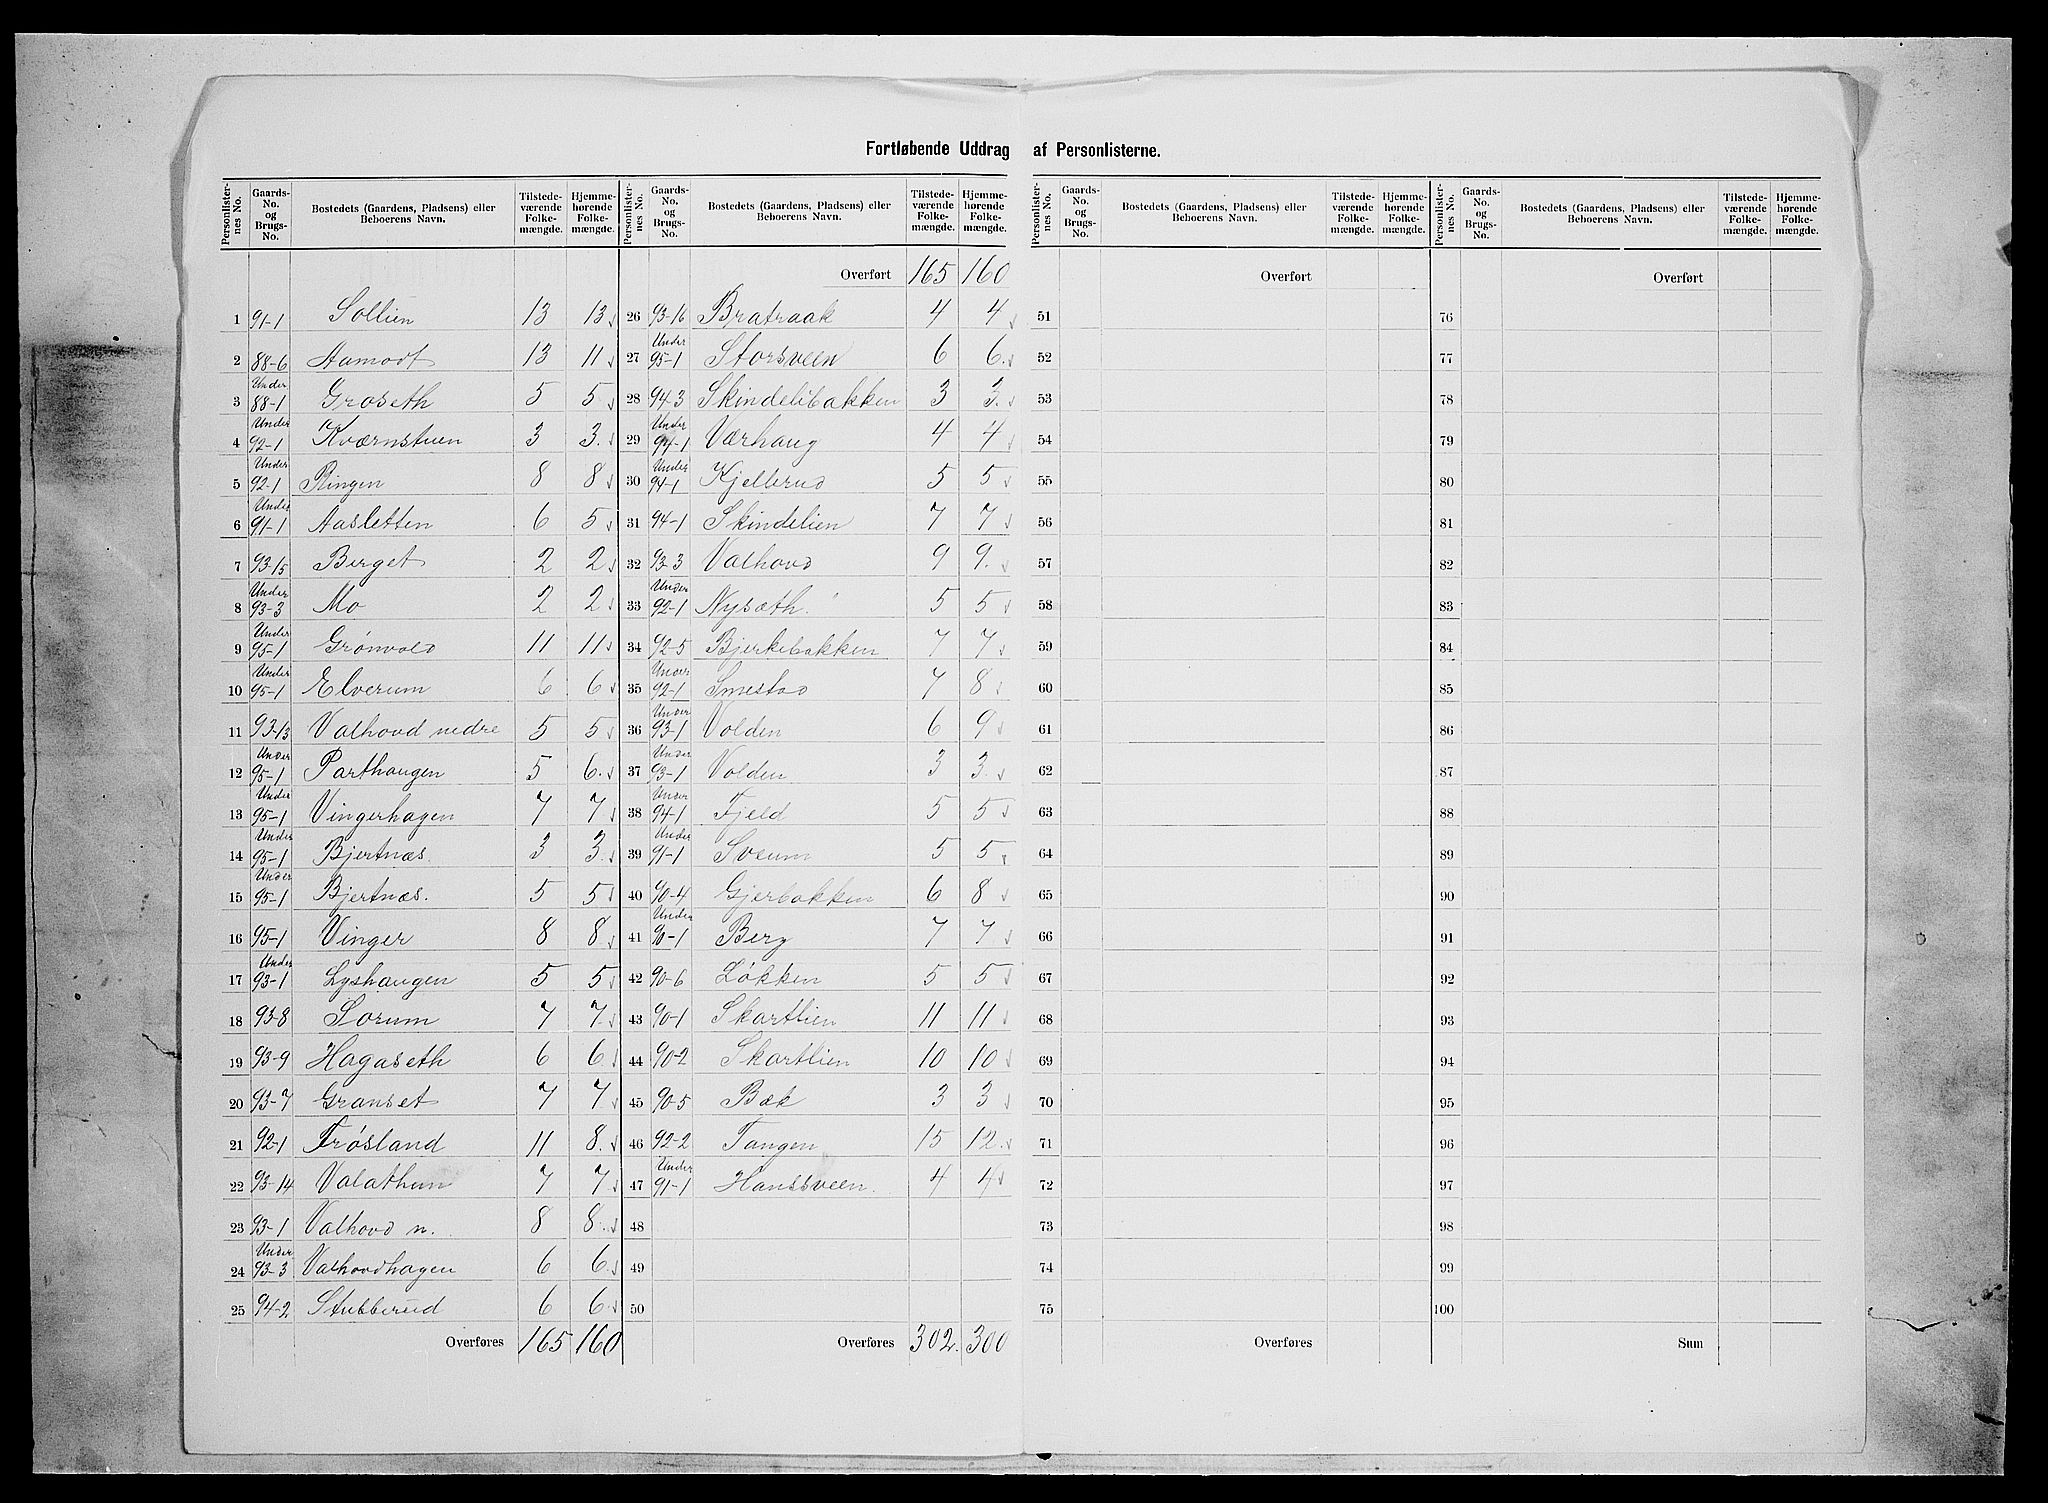 Fortløbende Uddrag af Personlisterne.
Personlister-nes No. | Gaards-No. og Brugs-No. | Bostedets (Gaardens, Pladsens) eller Beboerens Navn. | Tilstede-værende Folke-mængde. | Hjemme-hørende Folke-mængde.
1 | 91-1 | Sollien | 13 | 13
2 | 88-6 | Aamodt | 13 | 11
3 | Under 88-1 | Groseth | 5 | 5
4 | Under 92-1 | Kværnstuen | 3 | 3
5 | Under 92-1 | Ringen | 8 | 8
6 | Under 91-1 | Aasletten | 6 | 5
7 | 93-15 | Berget | 2 | 2
8 | Under 93-3 | Mo | 2 | 2
9 | Under 95-1 | Grønvold | 11 | 11
10 | Under 95-1 | Elverum | 6 | 6
11 | 93-13 | Valhovd nedre | 5 | 5
12 | Under 95-1 | Parthaugen | 5 | 6
13 | Under 95-1 | Vingerhagen | 7 | 7
14 | Under 95-1 | Bjertnæs. | 3 | 3
15 | Under 95-1 | Bjertnæs. | 5 | 5
16 | 95-1 | Vinger | 8 | 8
17 | Under 93-1 | Lyshaugen | 5 | 5
18 | 93-8 | Sorum | 7 | 7
19 | 93-9 | Hagaseth | 6 | 6
20 | 93-7 | Granset | 7 | 7
21 | 92-1 | Frøsland | 11 | 8
22 | 93-14 | Valathun | 7 | 7
23 | 93-1 | Valhovd n. | 8 | 8
24 | Under 93-3 | Valhovdhagen | 6 | 6
25 | 94-2 | Stubberud | 6 | 6
Overføres | 165 | 160
Personlister-nes No. | Gaards-No. og Brugs-No. | Bostedets (Gaardens, Pladsens) eller Beboerens Navn. | Tilstede-værende Folke-mængde. | Hjemme-hørende Folke-mængde.
Overført | 165 | 160
26 | 93-16 | Bratraak | 4 | 4
27 | Under 95-1 | Storsveen | 6 | 6
28 | 94-3 | Skindelibakken | 3 | 3
29 | Under 94-1 | Værhaug | 4 | 4
30 | Under 94-1 | Kjellerud | 5 | 5
31 | 94-1 | Skindelien | 7 | 7
32 | 93-3 | Valhovd | 9 | 9
33 | Under 92-1 | Nysæth | 5 | 5
34 | 92-5 | Bjerkebakken | 7 | 7
35 | Under 92-1 | Smestad | 7 | 8
36 | Under 93-1 | Volden | 6 | 9
37 | Under 93-1 | Volden | 3 | 3
38 | Under 94-1 | Fjeld | 5 | 5
39 | Under 91-1 | Sveum | 5 | 5
40 | 90-4 | Gjerbakken | 6 | 8
41 | Under 90-1 | Berg | 7 | 7
42 | 90-6 | Løkken | 5 | 5
43 | 90-1 | Skartlien | 11 | 11
44 | 90-2 | Skartlien | 10 | 10
45 | 90-5 | Bæk | 3 | 3
46 | 92-2 | Tangen | 15 | 12
47 | Under 91-1 | Hanssveen | 4 | 4
48
49
50
Overføres | 302 | 300
Personlister-nes No. | Gaards-No. og Brugs-No. | Bostedets (Gaardens, Pladsens) eller Beboerens Navn. | Tilstede-værende Folke-mængde. | Hjemme-hørende Folke-mængde.
Overført
51
52
53
54
55
56
57
58
59
60
61
62
63
64
65
66
67
68
69
70
71
72
73
74
75
Overføres
Personlister-nes No. | Gaards-No. og Brugs-No. | Bostedets (Gaardens, Pladsens) eller Beboerens Navn. | Tilstede-værende Folke-mængde. | Hjemme-hørende Folke-mængde.
Overført
76
77
78
79
80
81
82
83
84
85
86
87
88
89
90
91
92
93
94
95
96
97
98
99
100
Sum